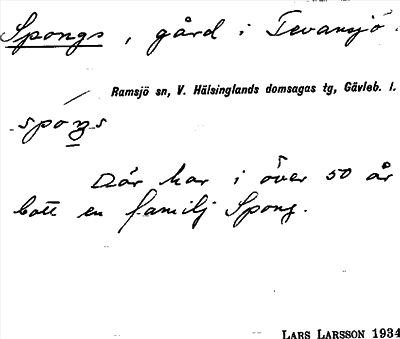 Spongs, gård i Tevansjö.
Ramsjö sn, V. Hälsinglands domsagas tg, Gävleb. l.
spóŋs
Där har i över 50 år
bott en familj Spong.
LARS LARSSON 1934